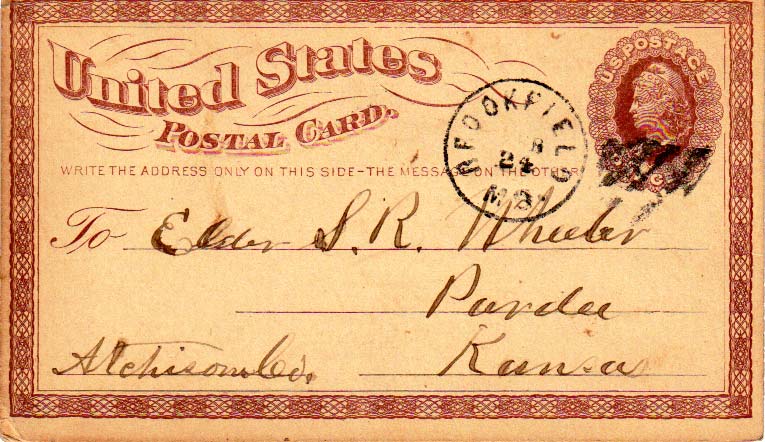 United States
POSTAL CARD.
U.S. POSTAGE
BROOKFIELD
24
MO
WRITE THE ADDRESS ONLY ON THIS SIDE-THE MESSAGE ON THE OTHER
To Elder S. R. Wheeler
Pardee
Atchison Co. Kansas